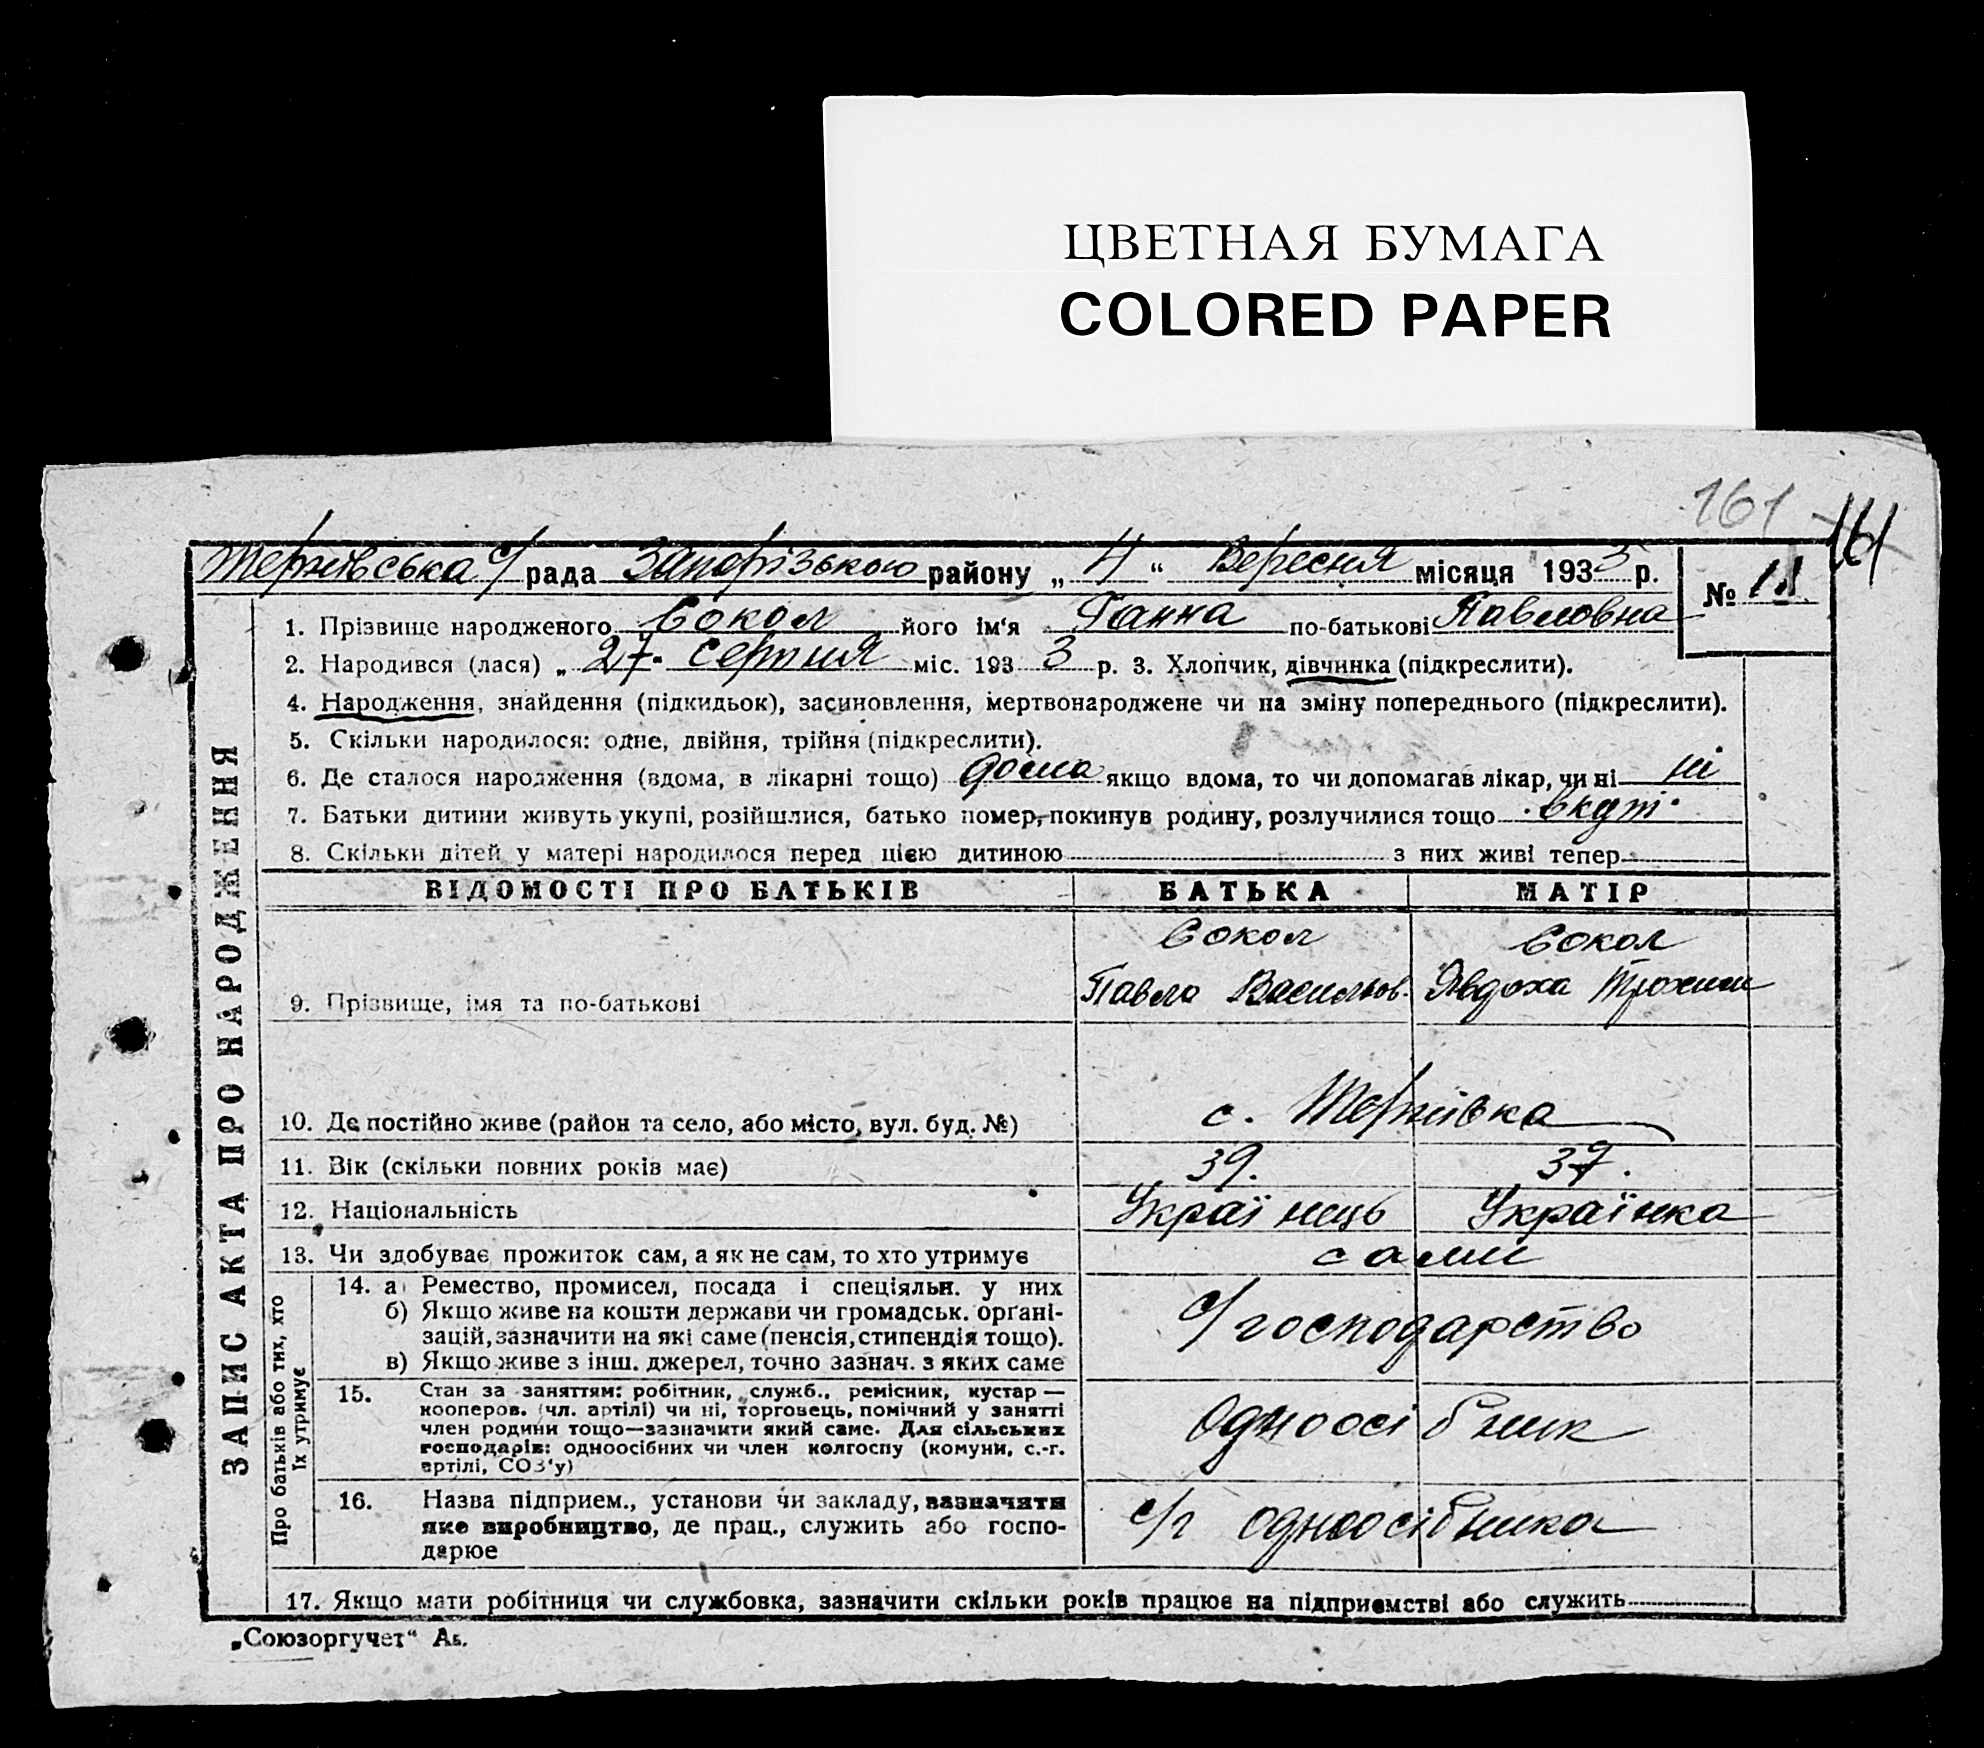 ЦВЕТНАЯ БУМАГА
COLORED PAPER
161
161
Тернівська с/ рада Запорізького району „ 4 “ Вересня місяця 1933 р.
№ 11
ЗАПИС АКТА ПРО НАРОДЖЕННЯ
1. Прізвище народженого Сокол його ім‘я Ганна по-батькові Павловна
2. Народився (лася) „ 27. серпня міс. 193 3 р. 3. Хлопчик, дівчинка (підкреслити).
4. Народження, знайдення (підкидьок), засиновлення, мертвонароджене чи на зміну попереднього (підкреслити).
5. Скільки народилося: одне, двійня, трійня (підкреслити).
6. Де сталося народження (вдома, в лікарні тощо) дома якщо вдома, то чи допомагав лікар, чи ні ні
7. Батьки дитини живуть укупі, розійшлися, батько помер, покинув родину, розлучилися тощо вкупі
8. Скільки дітей у матері народилося перед цією дитиною з них живі тепер
ВІДОМОСТІ ПРО БАТЬКІВ БАТЬКА МАТІР
Сокол Сокол
9. Прізвище, імя та по-батькові Павло Васильов. Явдоха Трохим
10. Де постійно живе (район та село, або місто, вул. буд. №) с. Тернівка
11. Вік (скільки повних років має) 39. 37.
12. Національність Українець Українка
13. Чи здобуває прожиток сам, а як не сам, то хто утримує сами
Про батьків або тих, хто їх утримує
14. а) Ремество, промисел, посада і спеціяльн. у них
б) Якщо живе на кошти держави чи громадськ. орґані-
зацій, зазначити на які саме (пенсія, стипендія тощо).
в) Якщо живе з інш. джерел, точно зазнач. з яких саме
с/господарство
15. Стан за заняттям: робітник, служб., ремісник, кустар —
кооперов. (чл. артілі) чи ні, торговець, помічний у занятті
член родини тощо—зазначити який саме. Для сільських
господарів: одноосібних чи член колгоспу (комуни, с.-г.
артілі, СОЗ‘у)
Одноосібник
16. Назва підприєм., установи чи закладу, зазначити
яке виробництво, де прац., служить або госпо-
дарює
с/г одноосібника
17. Якщо мати робітниця чи службовка, зазначити скільки років працює на підприємстві або служить
„Союзоргучет“